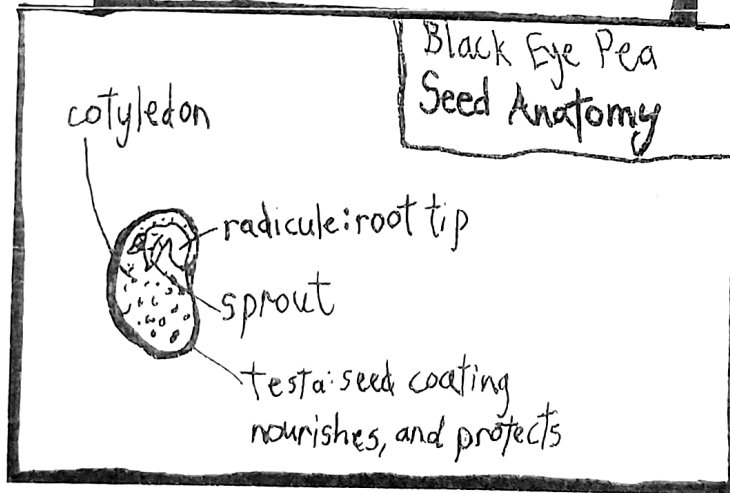 Black Eye Pea
Seed Anatomy
cotyledon
radicule: root tip
sprout
testa: seed coating
nourishes, and protects